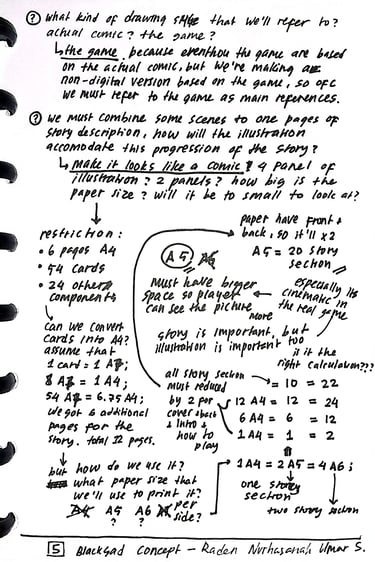 ? what kind of drawing style that we'll refer to?
actual comic? the game?
↳ the game. because eventhou the game are based
on the actual comic, but we're making a
non-digital version based on the game, so ofc
we must refer to the game as main references.
? we must combine some scenes to one pages of
story description, how will the illustration
accomodate this progression of the story?
↳ make it looks like a comic? 4 panel of
illustration? 2 panels? how big is the
paper size? will it be to small to look at?
restriction:
• 6 pages A4
• 54 cards
• 24 other
components
can we convert
cards into A4?
assume that
1 card = 1 A7;
8 A7 = 1 A4;
54 A7 = 6.75 A4;
we got 6 additional
pages for the
story. total 12 pages.
but how do we use it?
what paper size that
we'll use to print it?
A4 A5 A6 per
? ? side?
paper have front &
back, so it'll x2
A5 = 20 story
section
A5 A6
must have bigger
space so player
can see the picture
more
especially its
cinematic in
the real game
story is important, but
illustration is important too
is it the
right calculation???
all story section
must reduced
by 2 for
cover & back
& intro &
how to
play
= 10 = 22
12 A4 = 12 = 24
6 A4 = 6 = 12
1 A4 = 1 = 2
1 A4 = 2 A5 = 4 A6;
one story
section
two story section
5 Blacksad Concept - Raden Nurhasanah Umar S.